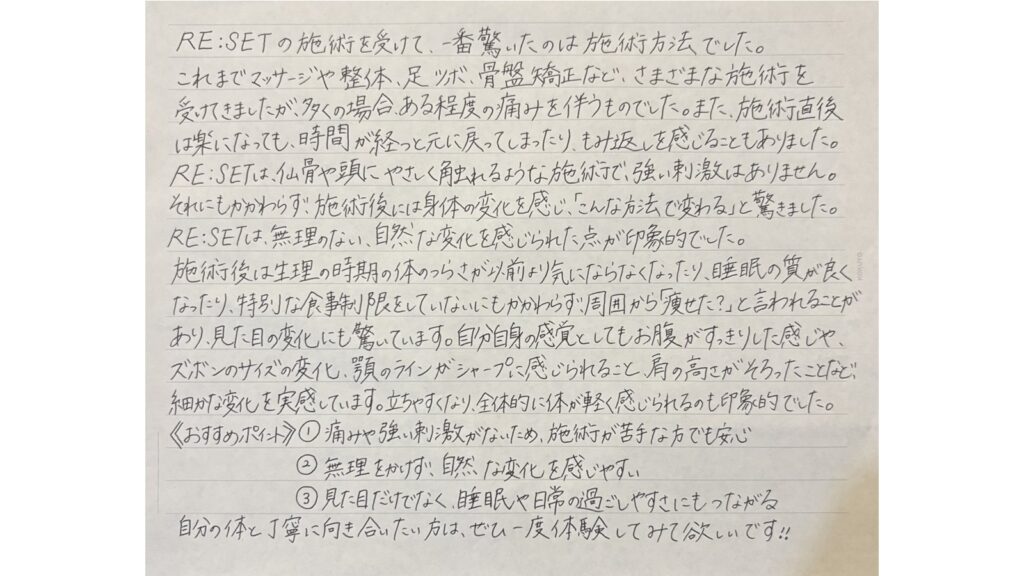 RE:SETの施術を受けて、一番驚いたのは施術方法でした。
これまでマッサージや整体、足ツボ、骨盤矯正など、さまざまな施術を
受けてきましたが、多くの場合、ある程度の痛みを伴うものでした。また、施術直後
は楽になっても、時間が経つと元に戻ってしまったり、もみ返しを感じることもありました。
RE:SETは、仙骨や頭にやさしく触れるような施術で、強い刺激はありません。
それにもかかわらず、施術後には身体の変化を感じ、「こんな方法で変わる」と驚きました。
RE:SETは、無理のない、自然な変化を感じられた点が印象的でした。
施術後は生理の時期の体のつらさが以前より気にならなくなったり、睡眠の質が良く
なったり、特別な食事制限をしていないにもかかわらず、周囲から「痩せた?」と言われることが
あり、見た目の変化にも驚いています。自分自身の感覚としてもお腹がすっきりした感じや、
ズボンのサイズの変化、顎のラインがシャープに感じられること、肩の高さがそろったことなど、
細かな変化を実感しています。立ちやすくなり、全体的に体が軽く感じられるのも印象的でした。
《おすすめポイント》① 痛みや強い刺激がないため、施術が苦手な方でも安心
② 無理をかけず、自然な変化を感じやすい
③ 見た目だけでなく、睡眠や日常の過ごしやすさにもつながる
自分の体と丁寧に向き合いたい方は、ぜひ一度体験してみて欲しいです!!